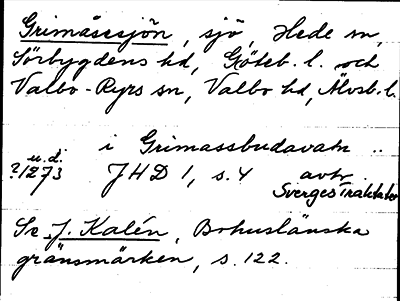 Grimåsesjön, sjö, Hede sn,
Sörbygdens hd, Göteb. l. och
Valbo-Ryrs sn, Valbo hd, Älvsb. l.
u.d.
?1273 i Grimassbudavatn ..
JHD 1, s. 4 avtr.
Sverges Traktater
Se J. Kalén, Bohuslänska
gränsmärken, s. 122.